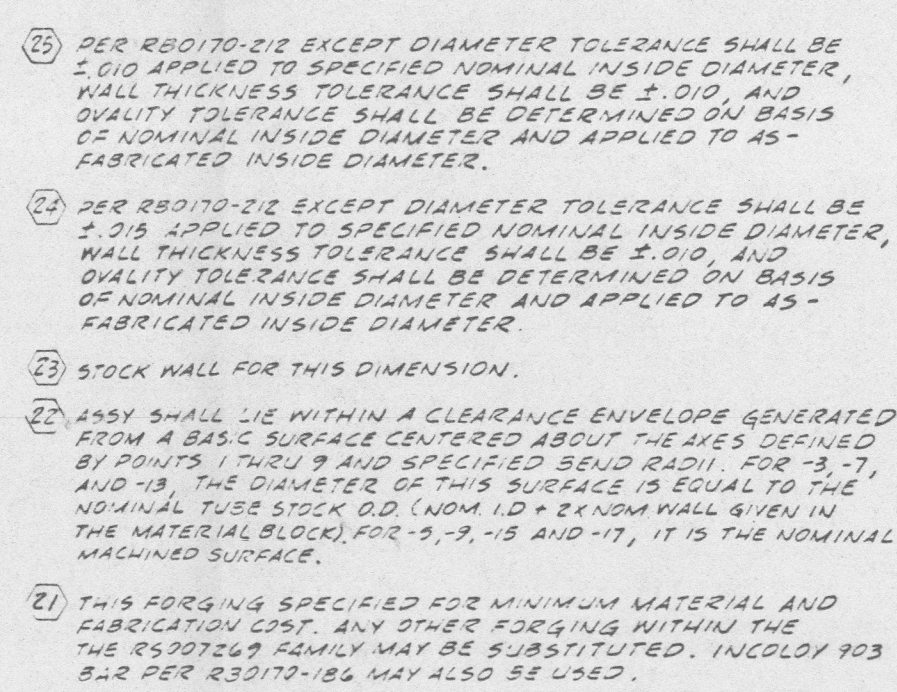 25 PER RB0170-212 EXCEPT DIAMETER TOLERANCE SHALL BE
±.010 APPLIED TO SPECIFIED NOMINAL INSIDE DIAMETER,
WALL THICKNESS TOLERANCE SHALL BE ±.010, AND
OVALITY TOLERANCE SHALL BE DETERMINED ON BASIS
OF NOMINAL INSIDE DIAMETER AND APPLIED TO AS-
FABRICATED INSIDE DIAMETER.
24 PER RB0170-212 EXCEPT DIAMETER TOLERANCE SHALL BE
±.015 APPLIED TO SPECIFIED NOMINAL INSIDE DIAMETER,
WALL THICKNESS TOLERANCE SHALL BE ±.010, AND
OVALITY TOLERANCE SHALL BE DETERMINED ON BASIS
OF NOMINAL INSIDE DIAMETER AND APPLIED TO AS-
FABRICATED INSIDE DIAMETER.
23 STOCK WALL FOR THIS DIMENSION.
22 ASSY SHALL LIE WITHIN A CLEARANCE ENVELOPE GENERATED
FROM A BASIC SURFACE CENTERED ABOUT THE AXES DEFINED
BY POINTS 1 THRU 9 AND SPECIFIED BEND RADII. FOR -3, -7,
AND -13, THE DIAMETER OF THIS SURFACE IS EQUAL TO THE
NOMINAL TUBE STOCK O.D. (NOM. I.D + 2X NOM. WALL GIVEN IN
THE MATERIAL BLOCK). FOR -5, -9, -15 AND -17, IT IS THE NOMINAL
MACHINED SURFACE.
21 THIS FORGING SPECIFIED FOR MINIMUM MATERIAL AND
FABRICATION COST. ANY OTHER FORGING WITHIN THE
THE RS007269 FAMILY MAY BE SUBSTITUTED. INCOLOY 903
BAR PER RB0170-186 MAY ALSO BE USED.